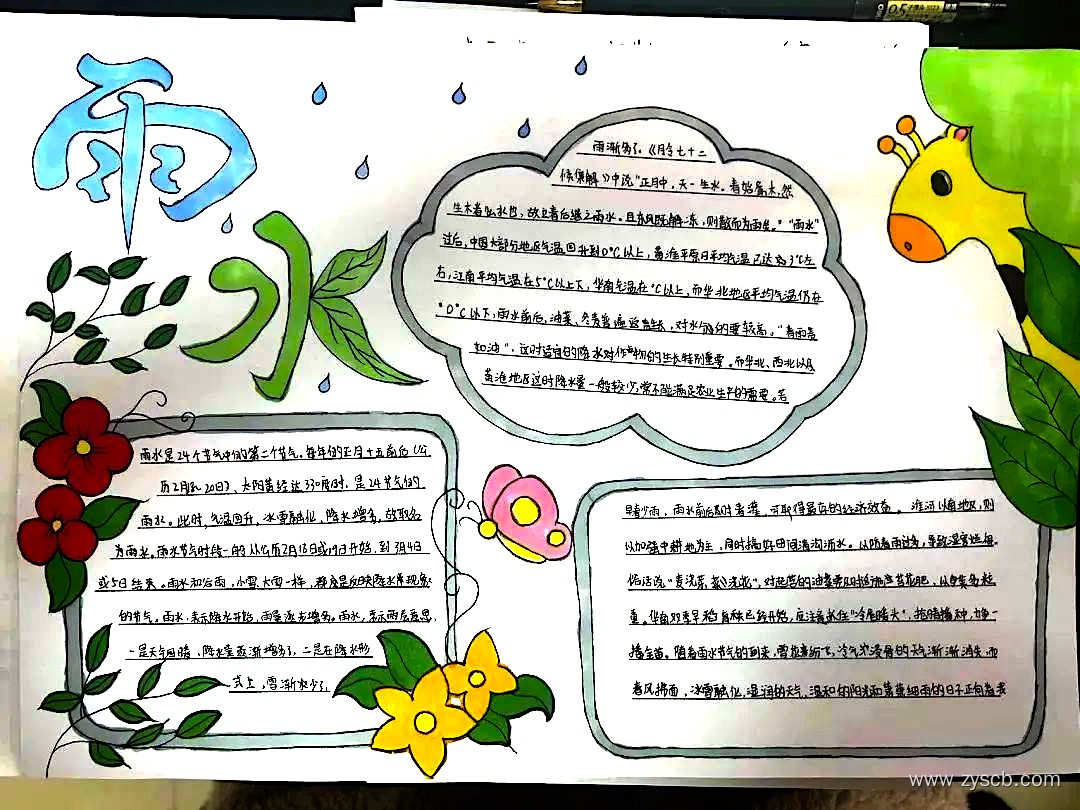 雨
水
雨水是24个节气中的第二个节气。每年的正月十五前后(公
历2月18-20日),太阳黄经达330度时,是24节气的
雨水。此时,气温回升、冰雪融化、降水增多,故取名
为雨水。雨水节气时段一般从公历2月18日或19日开始,到3月4日
或5日结束。雨水和谷雨、小雪、大雪一样,都是反映降水现象
的节气。雨水,表示降水开始,雨量逐步增多。雨水,表示两层意思,
一是天气回暖,降水量逐渐增多了,二是在降水形
式上,雪渐少了,
雨渐多了。《月令七十二
候集解》中说"正月中,天一生水。春始属木,然
生木者必水也,故立春后继之雨水。且东风既解冻,则散而为雨矣。""雨水"
过后,中国大部分地区气温回升到0°C以上,黄淮平原日平均气温已达3°C左
右,江南平均气温在5°C以上下,华南气温在°C以上,而华北地区平均气温仍在
0°C以下,雨水前后,油菜、冬麦普遍返青生长,对水分的要求较高。"春雨贵
如油",这时适宜的降水对作物的生长特别重要。而华北、西北以及
黄淮地区这时降水量一般较少,常不能满足农业生产的需要。若
早春少雨,雨水前后及时春灌,可取得最好的经济效益。淮河以南地区,则
以加强中耕地为主,同时搞好田间清沟沥水。以防春雨过多,导致湿害烂根。
俗话说"麦浇芽,菜浇花",对起苔的油菜要及时追施苔花肥,以争荚多粒
重。华南双季早稻育秧已经开始,应注意抓住"冷尾暖头",抢晴播种,力争一
播全苗。随着雨水节气的到来,雪花纷飞、冷气浸骨的天气渐渐消失,而
春风拂面,冰雪融化,湿润的天气、温和的阳光和萧萧细雨的日子正向我们
www.zyscb.com